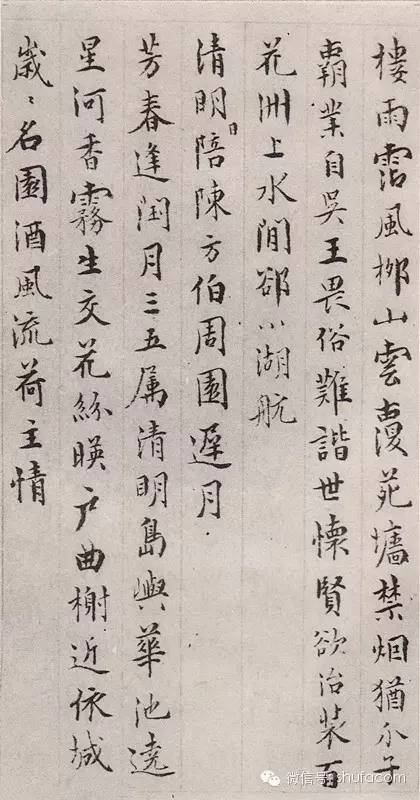 樓雨霑風栁山雲覆苑墻禁烟猶介子
覇業自吳王畏俗難諧世懷賢欲治裝百
花洲上水閒郤小湖航
清明日陪陳方伯周園遲月
芳春逢閏月三五属清明島嶼華池遶
星河香霧生交花紛暎户曲榭近依城
歲〻名園酒風流荷主情
微信号: shufacom